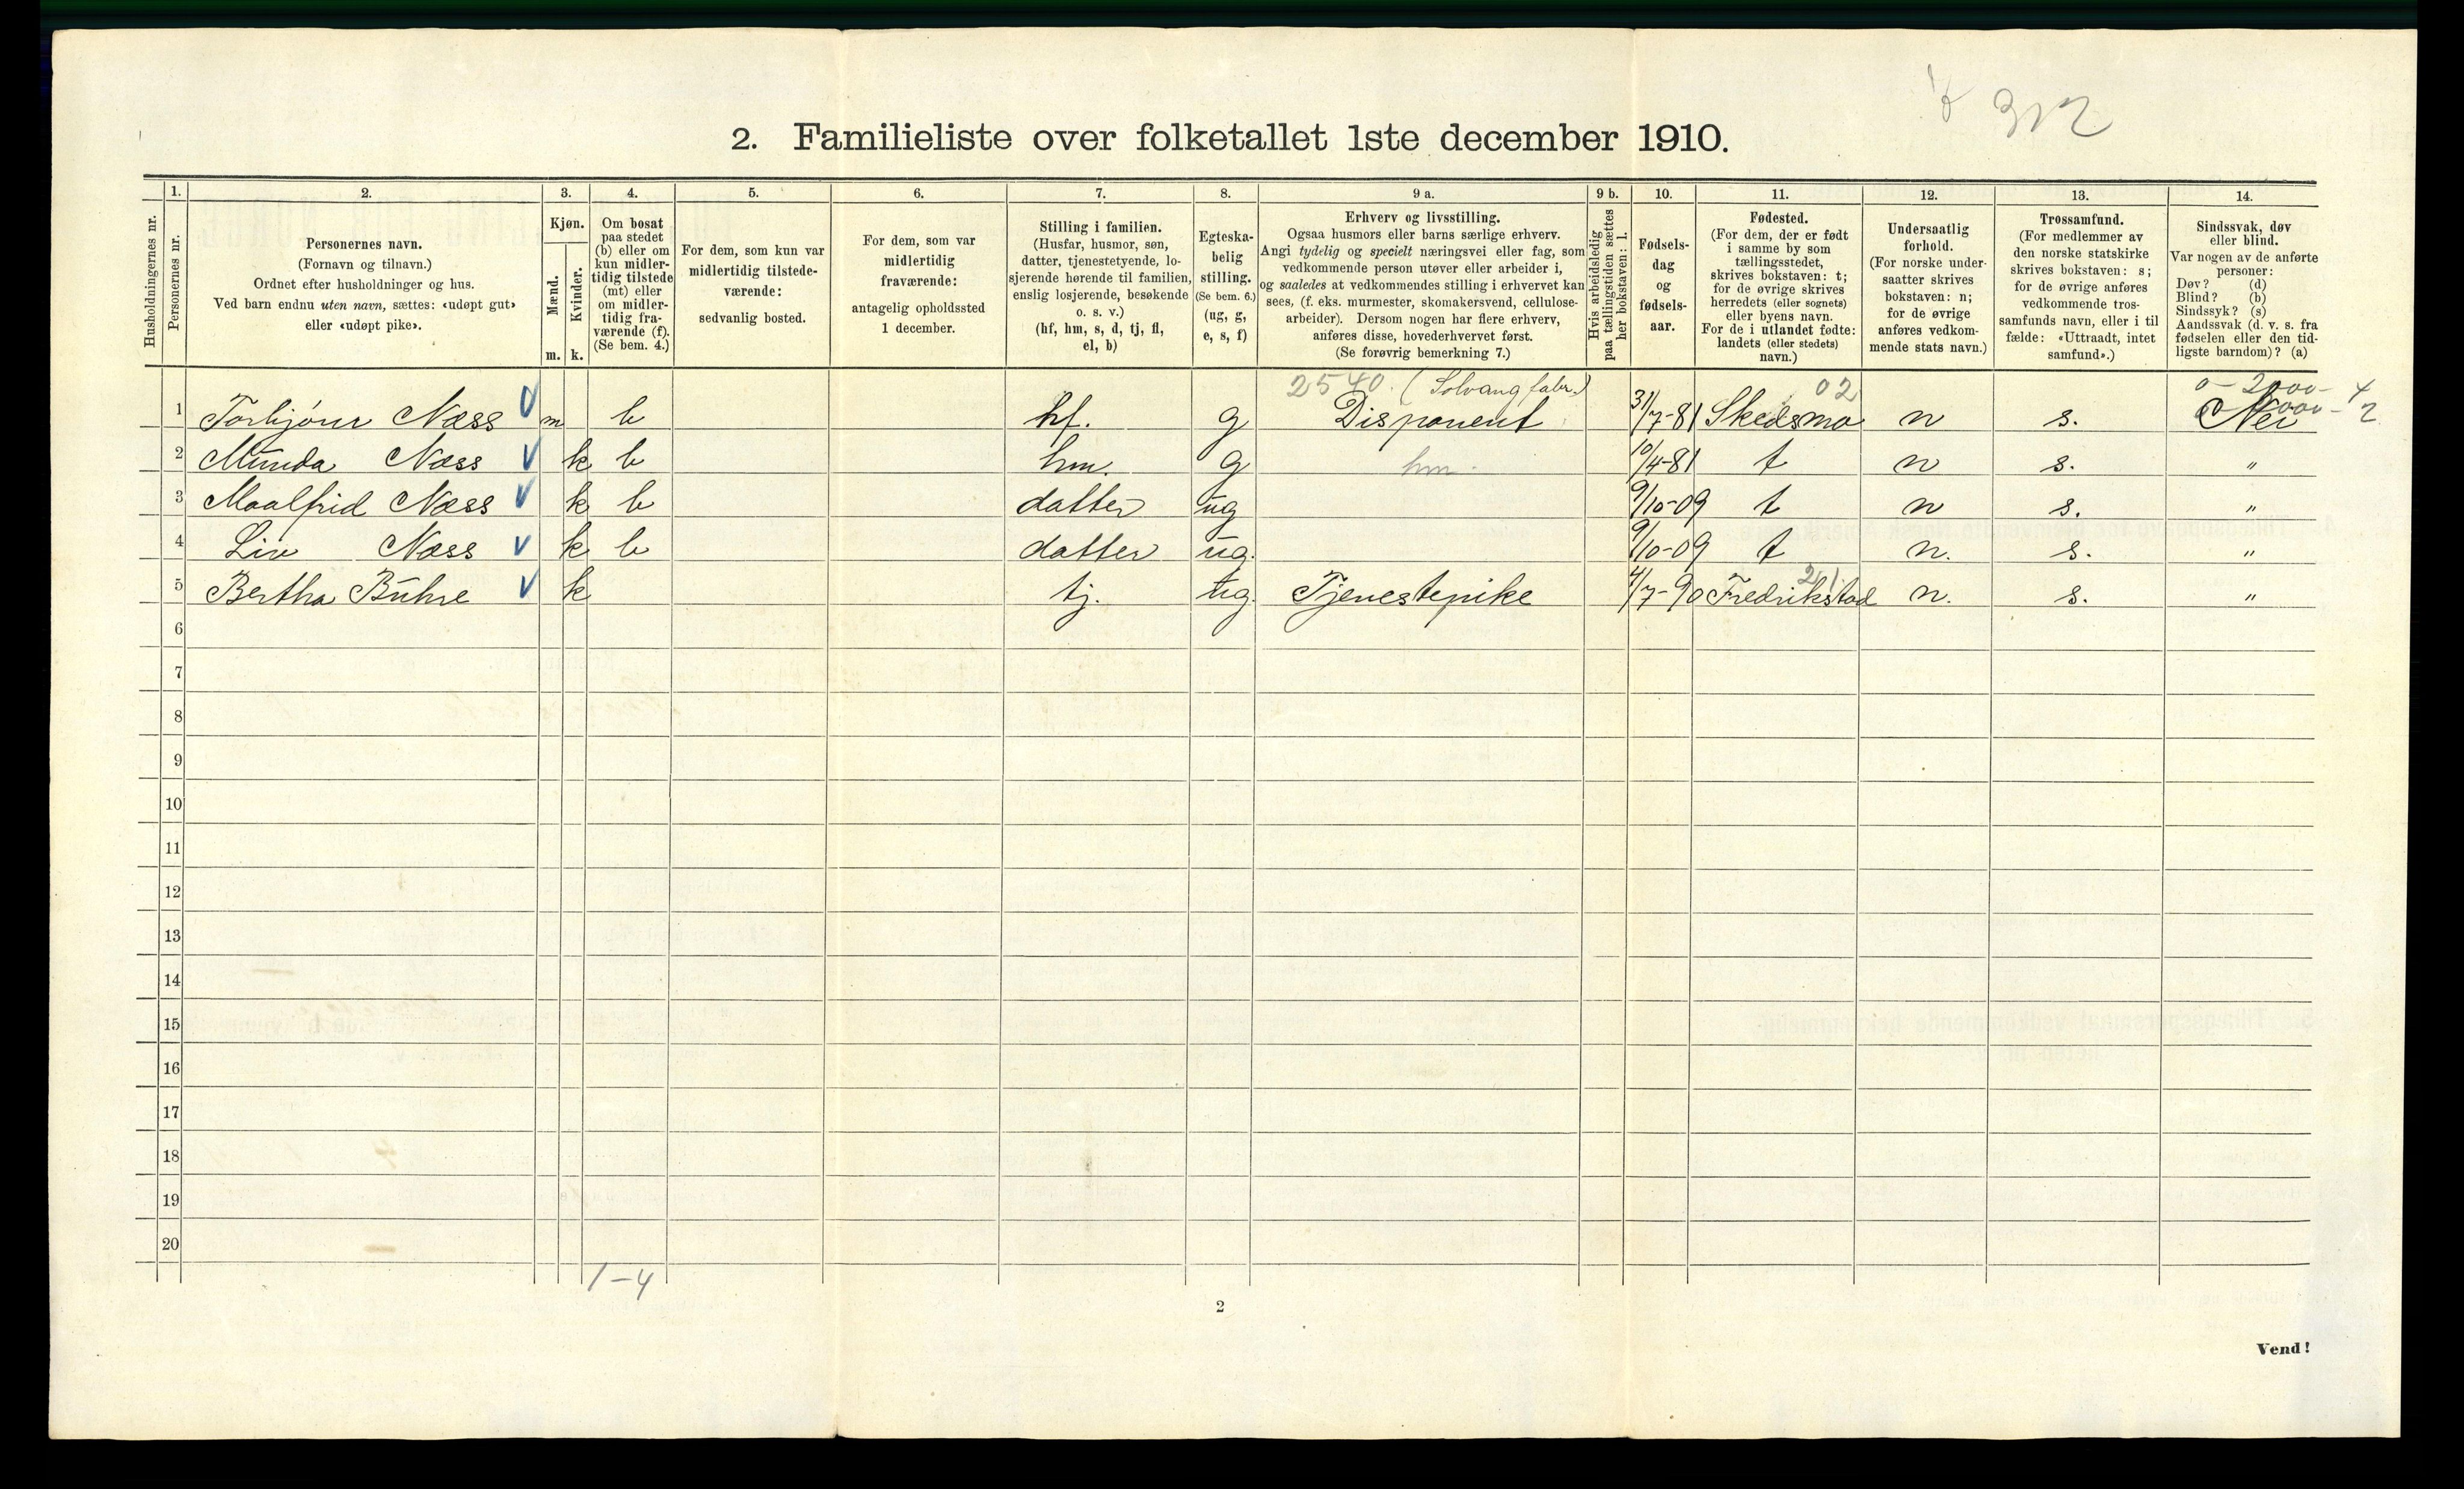 312
2. Familieliste over folketallet 1ste december 1910.
1. 2. 3. 4. 5. 6. 7. 8. 9 a. 9 b. 10. 11. 12. 13. 14.
Husholdningernes nr.
Personernes nr.
Personernes navn.
(Fornavn og tilnavn.)
Ordnet efter husholdninger og hus.
Ved barn endnu uten navn, sættes: «udøpt gut»
eller «udøpt pike».
Kjøn.
Mænd.
Kvinder.
m. k.
Om bosat
paa stedet
(b) eller om
kun midler-
tidig tilstede
(mt) eller
om midler-
tidig fra-
værende (f).
(Se bem. 4.)
For dem, som kun var
midlertidig tilstede-
værende:
sedvanlig bosted.
For dem, som var
midlertidig
fraværende:
antagelig opholdssted
1 december.
Stilling i familien.
(Husfar, husmor, søn,
datter, tjenestetyende, lo-
sjerende hørende til familien,
enslig losjerende, besøkende
o. s. v.)
(hf, hm, s, d, tj, fl,
el, b)
Egteska-
belig
stilling.
(Se bem. 6.)
(ug, g,
e, s, f)
Erhverv og livsstilling.
Ogsaa husmors eller barns særlige erhverv.
Angi tydelig og specielt næringsvei eller fag, som
vedkommende person utøver eller arbeider i,
og saaledes at vedkommendes stilling i erhvervet kan
sees, (f. eks. murmester, skomakersvend, cellulose-
arbeider). Dersom nogen har flere erhverv,
anføres disse, hovederhvervet først.
(Se forøvrig bemerkning 7.)
Hvis arbeidsledig
paa tællingstiden sættes
her bokstaven: l.
Fødsels-
dag
og
fødsels-
aar.
Fødested.
(For dem, der er født
i samme by som
tællingsstedet,
skrives bokstaven: t;
for de øvrige skrives
herredets (eller sognets)
eller byens navn.
For de i utlandet fødte:
landets (eller stedets)
navn.)
Undersaatlig
forhold.
(For norske under-
saatter skrives
bokstaven: n;
for de øvrige
anføres vedkom-
mende stats navn.)
Trossamfund.
(For medlemmer av
den norske statskirke
skrives bokstaven: s;
for de øvrige anføres
vedkommende tros-
samfunds navn, eller i til
fælde: «Uttraadt, intet
samfund».)
Sindssvak, døv
eller blind.
Var nogen av de anførte
personer:
Døv? (d)
Blind? (b)
Sindssyk? (s)
Aandssvak (d. v. s. fra
fødselen eller den tid-
ligste barndom)? (a)
2540. (Solvang fabr.) 02 0 - 2000 - 4
1 Torbjörn Næss m b hf. g Disponent 31/7-81 Skedsmo n s. Nei
2 Munda Næss k b hm. g hm. 10/4-81 t n s. "
3 Maalfrid Næss k b datter ug 9/10-09 t n s. "
4 Liv Næss k b datter ug. 9/10-09 t n. s. "
21
5 Bertha Buhre k tj. ug. Tjenestepike 4/7-90 Fredrikstad n. s. "
6
7
8
9
10
11
12
13
14
15
16
17
18
19
20
1-4
2
Vend!